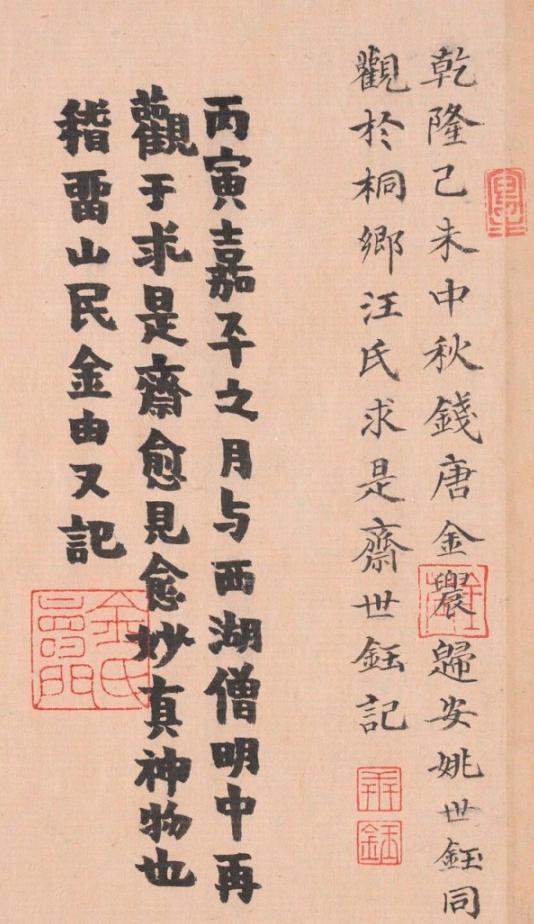 乾隆己未中秋錢唐金農歸安姚世鈺同
觀於桐鄉汪氏求是齋世鈺記
丙寅嘉平之月与西湖僧明中再
觀于求是齋愈見愈妙真神物也
稽畱山民金由又記
金氏
世鈺